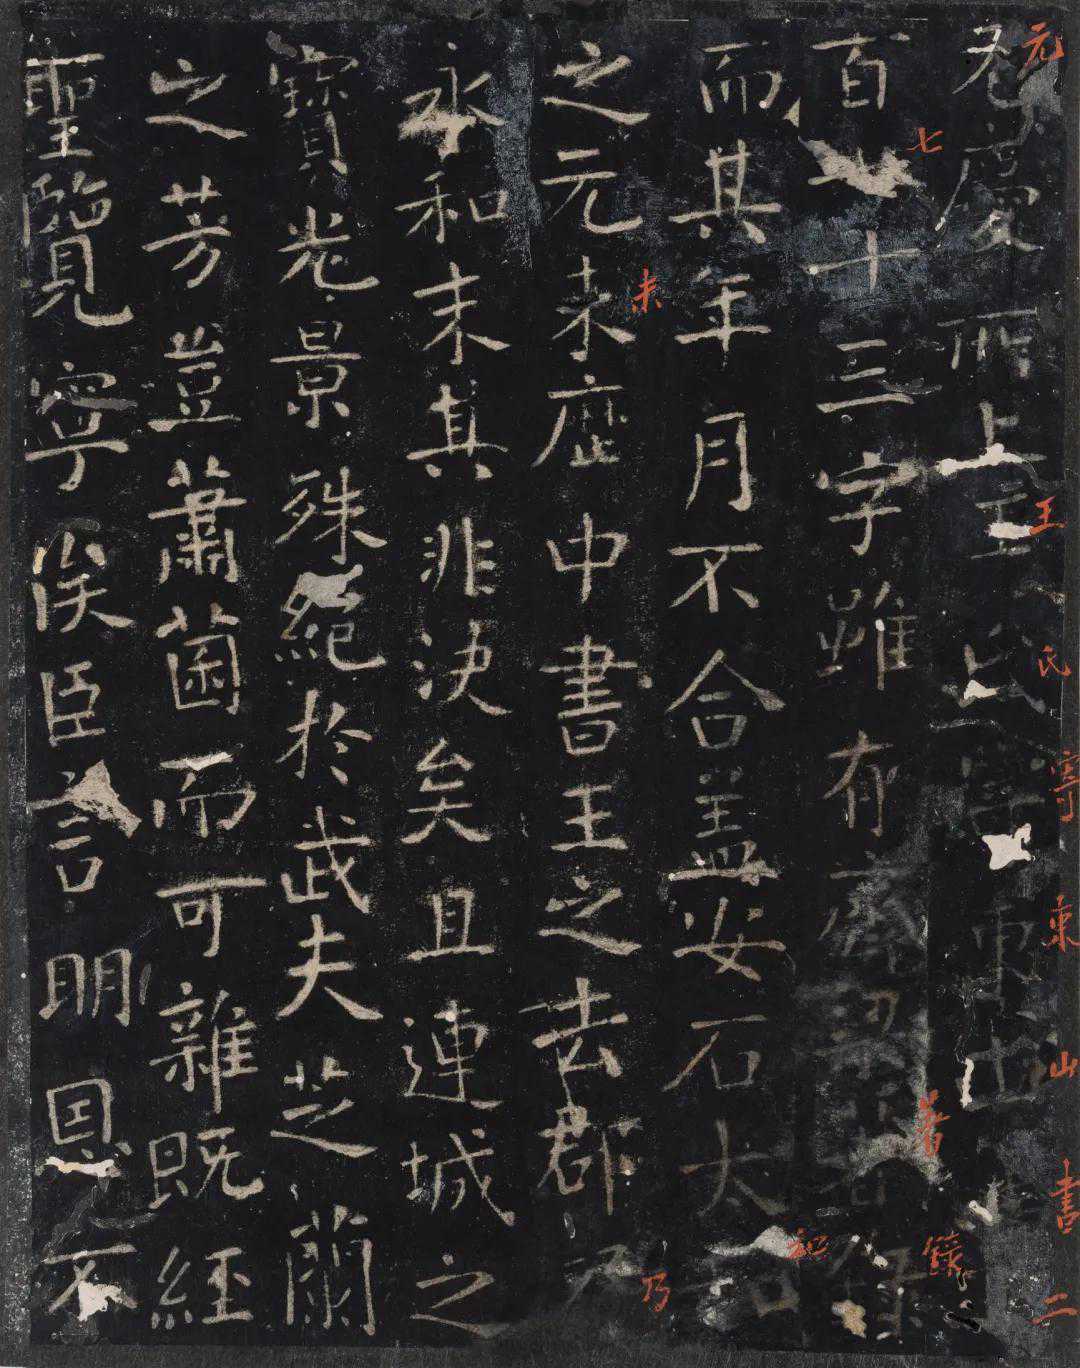 元王氏寧東山書二
慶所上王氏東山
七著錄
百十三字雖有齊梁著錄
和
而其年月不合盖安石太和
未乃
之元未歷中書王之去郡乃
永和末其非決矣且連城之
寶光景殊絕於武夫芝蘭
之芳豈蕭菌而可雜既經
聖覽寧俟臣言明恩不